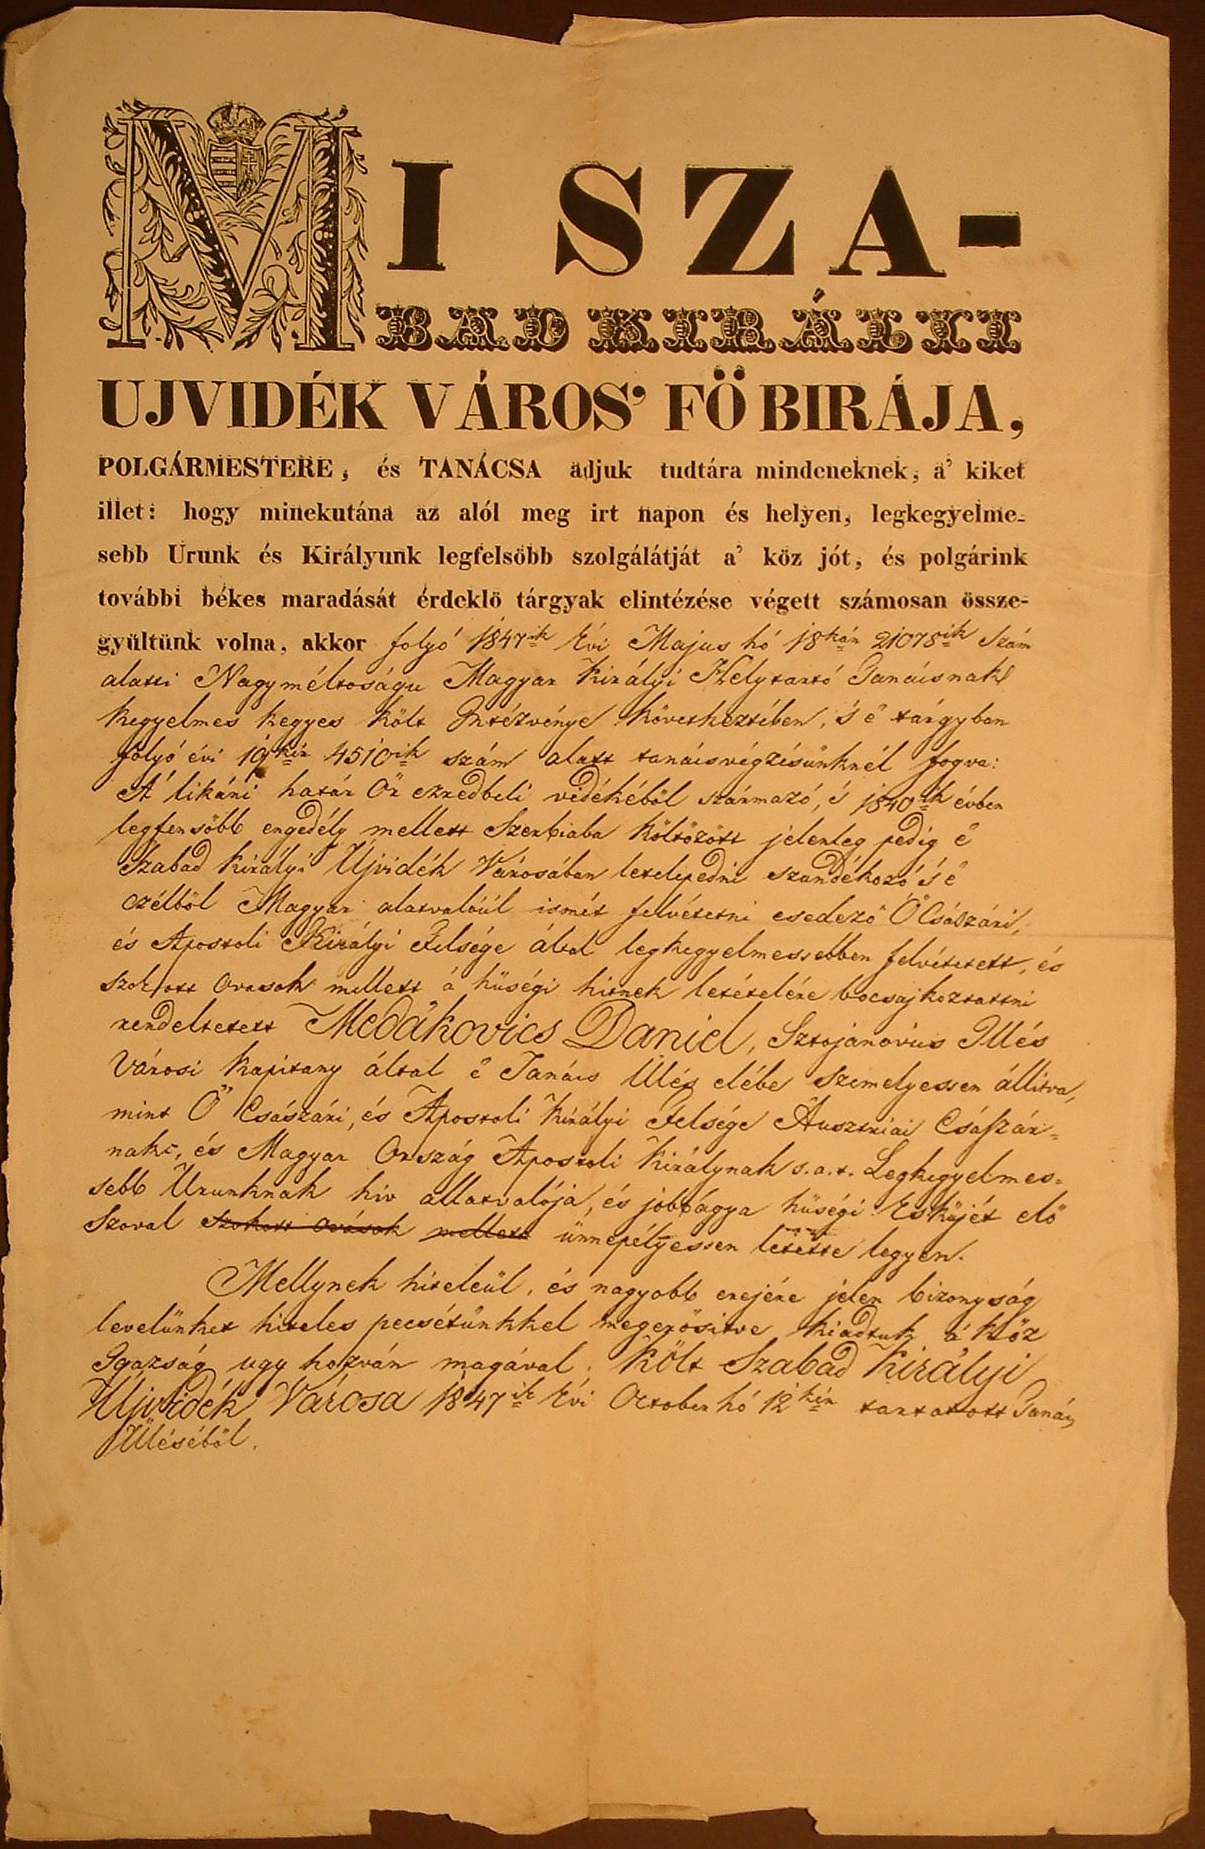 MI SZA-
BAD KIRÁLYI
UJVIDÉK VÁROS' FÖ BIRÁJA,
POLGÁRMESTERE, és TANÁCSA adjuk tudtára mindeneknek, a' kiket
illet: hogy minekutána az alól meg irt napon és helyen, legkegyelme-
sebb Urunk és Királyunk legfelsöbb szolgálátját a' köz jót, és polgárink
további békes maradását érdeklö tárgyak elintézése végett számosan össze-
gyültünk volna, akkor folyó 1847ik Évi Majus hó 18kán 21078ik Szám
alatti Nagyméltoságu Magyar Királyi Helytartó Tanácsnak
kegyelmes kegyes költ Intézvénye következtében, 's é tárgyban
folyó évi 4510ik szám alatt tanácsvégzésünknél fogva:
A' likáni határ Ör ezredbeli vidékéböl származó, 's 1840ik évben
legfensöbb engedély mellett Szerbiaba költözött jelenleg pedig é
Szabad Királyi Ujvidék Városában letelepedni szandékozó 's é
czélból Magyar alatvalóúl ismét felvétetni esedezö Ö Császári,
és Apostoli Királyi Felsége által legkegyelmessebben felvétetett, és
szokott ovások mellett á hüségi hitnek letételére bocsajkoztattni
rendeltetett Medákovics Daniel, Sztojánovics Illés
Városi Kapitany által é Tanács Ülés elébe szemelyessen állitva,
mint Ö Császári, és Apostoli Királyi Felsége Ausztriai Császár-
nak, és Magyar Ország Apostoli Királynak s.a.t. Legkegyelmes-
sebb Urunknak hiv allatvalója, és jobbágya hüségi Esküjét elö
Szoval szokott ovások mellett ünnepélyessen letétte legyen.
Mellynek hiteleül, és nagyobb erejére jelen bizonyság
levelünket hiteles pecsétünkkel megerösitve kiadtuk á Köz
Igazság ugy hozván magával. Költ Szabad Királyi
Ujvidék Városa 1847ik Évi October hó 12kén tartatott Tanács
Üléséböl.